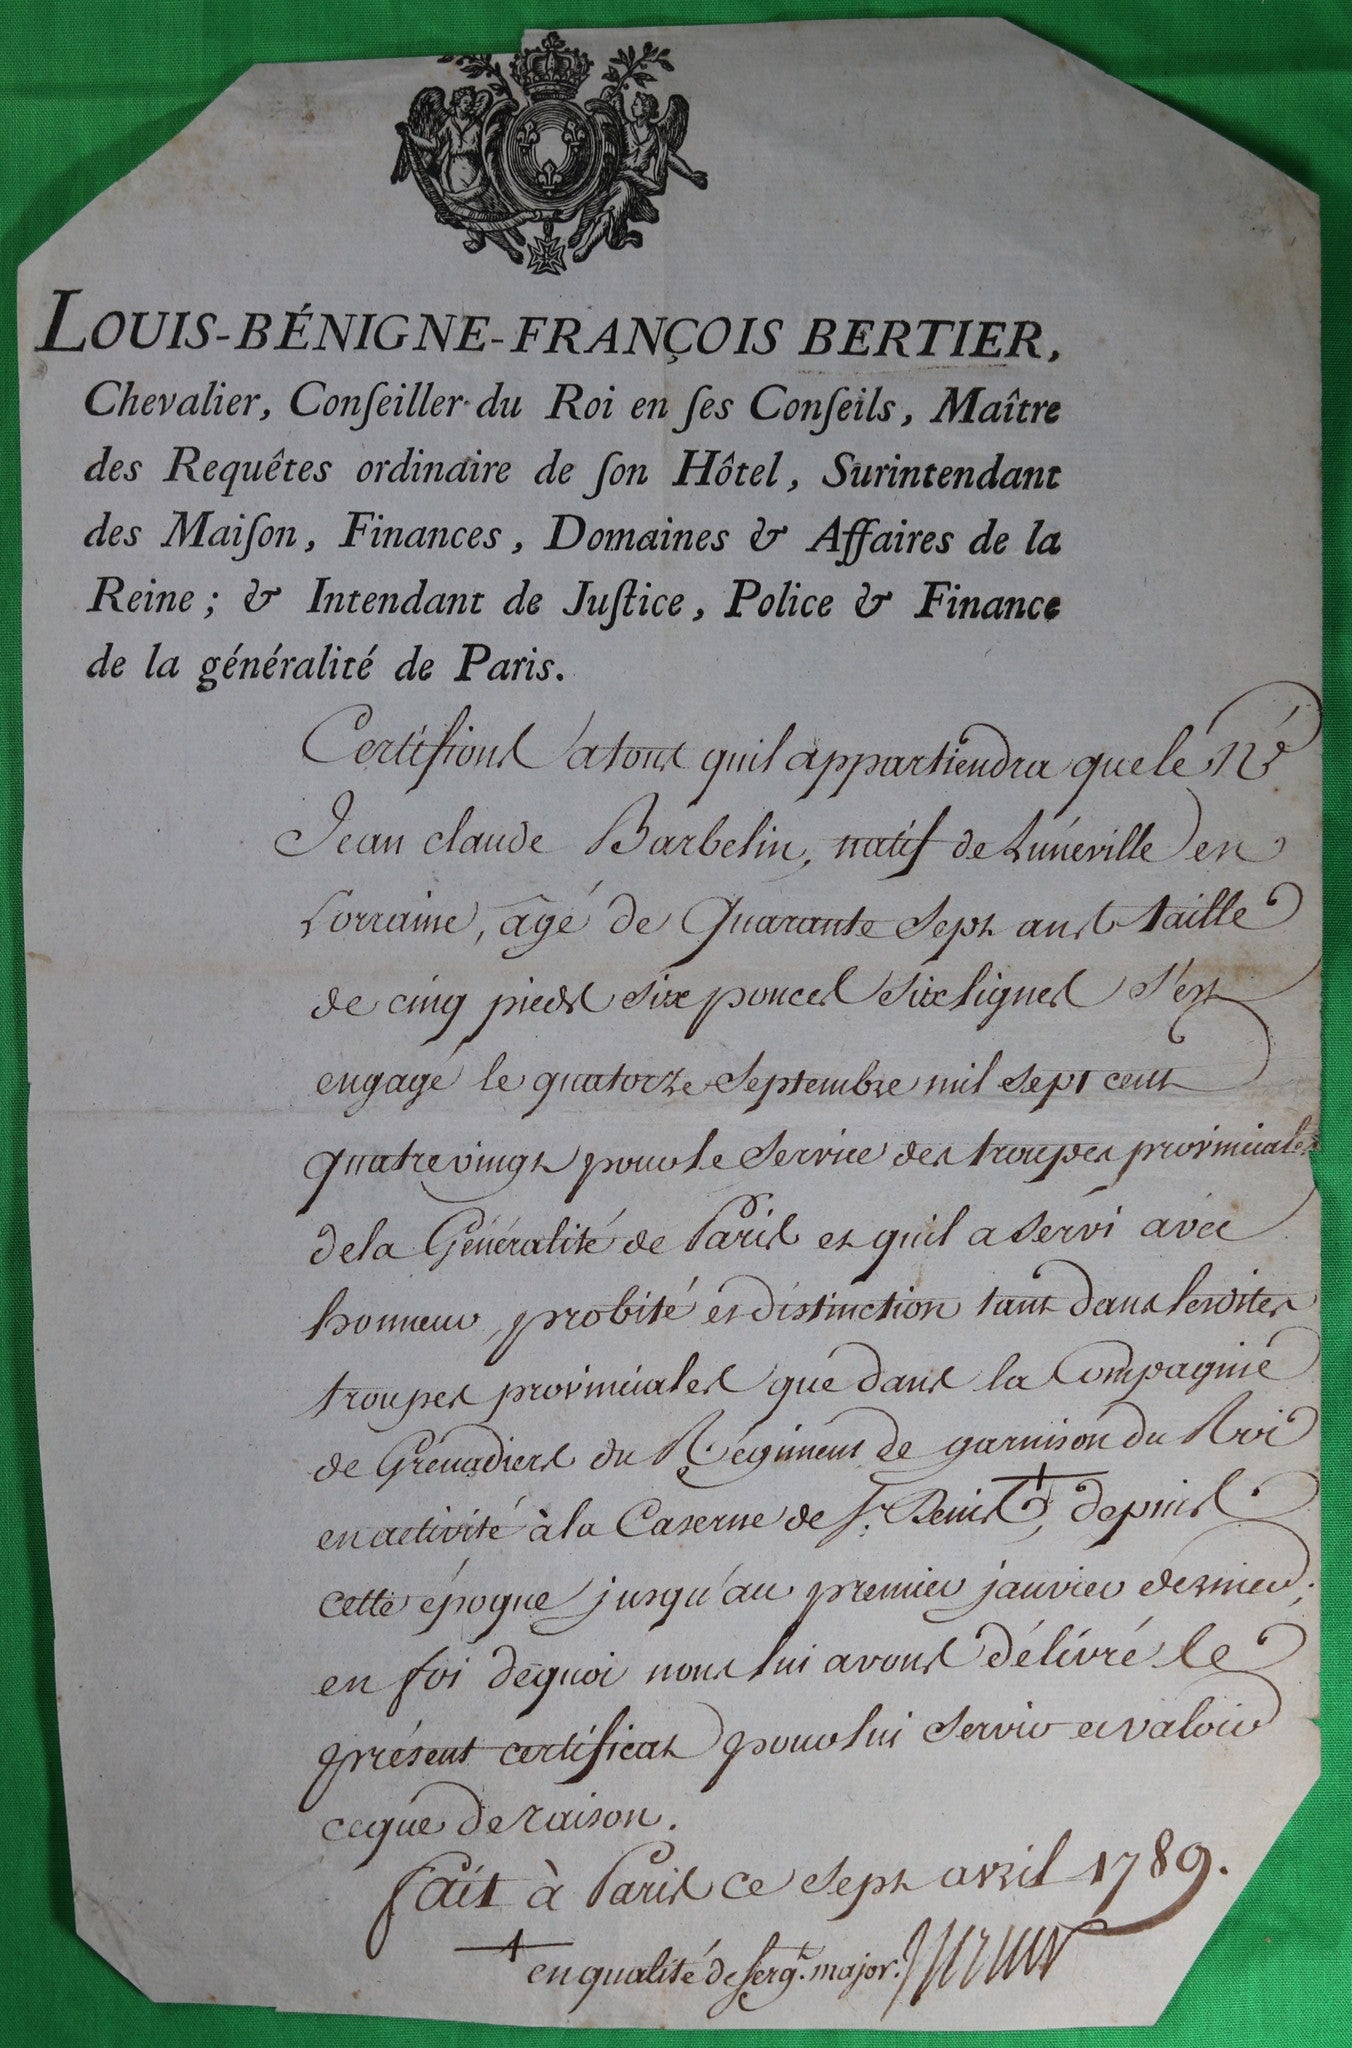 LOUIS-BÉNIGNE-FRANÇOIS BERTIER,
Chevalier, Conſeiller du Roi en ſes Conſeils, Maître
des Requêtes ordinaire de ſon Hôtel, Surintendant
des Maiſon, Finances, Domaines & Affaires de la
Reine; & Intendant de Juſtice, Police & Finance
de la généralité de Paris.
Certifions a tous quil appartiendra que le Né
Jean claude Barbelin, natif de Lunéville en
Lorraine, âgé de Quarante Sept ans taille
de cinq pieds Six pouces Six lignes S'est
engagé le quatorze Septembre mil Sept cent
quatrevingt pour le Service des troupes provinciales
de la Généralité de Paris et quil a Servi avec
honneur, probité et distinction tant dans lesdites
troupes provinciales que dans la Compagnie
de Grenadiers du Régiment de garnison du Roi
en activité à la Caserne de St. Denis +, depuis
cette époque jusqu'au premier janvier dernier;
en foi dequoi nous lui avons délivré le
présent certificat pour lui Servir et valoir
ceque de raison.
fait à Paris ce Sept avril 1789.
+ en qualité de Sergt. major.